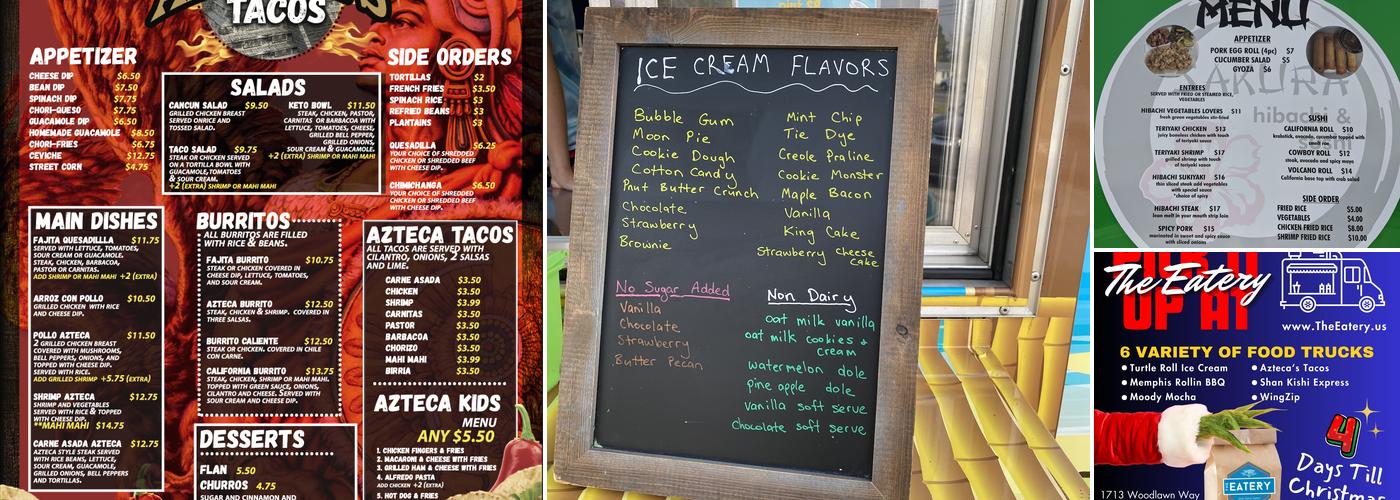 TACOS
APPETIZER
CHEESE DIP $6.50
BEAN DIP $7.50
SPINACH DIP $7.75
CHORI-QUESO $7.75
GUACAMOLE DIP $6.50
HOMEMADE GUACAMOLE $8.50
CHORI-FRIES $6.75
CEVICHE $12.75
STREET CORN $4.75
SALADS
CANCUN SALAD $9.50
GRILLED CHICKEN BREAST
SERVED ONRICE AND
TOSSED SALAD.
TACO SALAD $9.75
STEAK OR CHICKEN SERVED
ON A TORTILLA BOWL WITH
GUACAMOLE,TOMATOES
& SOUR CREAM.
+2 (EXTRA) SHRIMP OR MAHI MAHI
KETO BOWL $11.50
STEAK, CHICKEN, PASTOR,
CARNITAS OR BARBACOA WITH
LETTUCE, TOMATOES, CHEESE,
GRILLED BELL PEPPER,
GRILLED ONIONS,
SOUR CREAM & GUACAMOLE.
+2 (EXTRA) SHRIMP OR MAHI MAHI
SIDE ORDERS
TORTILLAS $2
FRENCH FRIES $3.50
SPINACH RICE $3
REFRIED BEANS $3
PLANTAINS $3
QUESADILLA $6.25
YOUR CHOICE OF SHREDDED
CHICKEN OR SHREDDED BEEF
WITH CHEESE DIP.
CHIMICHANGA $6.50
YOUR CHOICE OF SHREDDED
CHICKEN OR SHREDDED BEEF
WITH CHEESE DIP.
MAIN DISHES
FAJITA QUESADILLLA $11.75
SERVED WITH LETTUCE, TOMATOES,
SOUR CREAM OR GUACAMOLE.
STEAK, CHICKEN, BARBACOA,
PASTOR OR CARNITAS.
ADD SHRIMP OR MAHI MAHI +2 (EXTRA)
ARROZ CON POLLO $10.50
GRILLED CHICKEN WITH RICE
AND CHEESE DIP.
POLLO AZTECA $11.50
2 GRILLED CHICKEN BREAST
COVERED WITH MUSHROOMS,
BELL PEPPERS, ONIONS, AND
TOPPED WITH CHEESE DIP.
SERVED WITH RICE.
ADD GRILLED SHRIMP +5.75 (EXTRA)
SHRIMP AZTECA $12.75
SHRIMP AND VEGETABLES
SERVED WITH RICE & TOPPED
WITH CHEESE DIP.
**MAHI MAHI $14.75
CARNE ASADA AZTECA $12.75
AZTECA STYLE STEAK SERVED
WITH RICE BEANS, LETTUCE,
SOUR CREAM, GUACAMOLE,
GRILLED ONIONS, BELL PEPPERS
AND TORTILLAS.
BURRITOS
ALL BURRITOS ARE FILLED
WITH RICE & BEANS.
FAJITA BURRITO $10.75
STEAK OR CHICKEN COVERED IN
CHEESE DIP, LETTUCE, TOMATOES,
AND SOUR CREAM.
AZTECA BURRITO $12.50
STEAK, CHICKEN & SHRIMP. COVERED IN
THREE SALSAS.
BURRITO CALIENTE $12.50
STEAK OR CHICKEN. COVERED IN CHILE
CON CARNE.
CALIFORNIA BURRITO $13.75
STEAK, CHICKEN, SHRIMP OR MAHI MAHI.
TOPPED WITH GREEN SAUCE, ONIONS,
CILANTRO AND CHEESE. SERVED WITH
SOUR CREAM AND CHEESE DIP.
DESSERTS
FLAN 5.50
CHURROS 4.75
SUGAR AND CINNAMON AND
AZTECA TACOS
ALL TACOS ARE SERVED WITH
CILANTRO, ONIONS, 2 SALSAS
AND LIME.
CARNE ASADA $3.50
CHICKEN $3.50
SHRIMP $3.99
CARNITAS $3.50
PASTOR $3.50
BARBACOA $3.50
CHORIZO $3.50
MAHI MAHI $3.99
BIRRIA $3.50
AZTECA KIDS
MENU
ANY $5.50
1. CHICKEN FINGERS & FRIES
2. MACARONI & CHEESE WITH FRIES
3. GRILLED HAM & CHEESE WITH FRIES
4. ALFREDO PASTA
ADD CHICKEN +2 (EXTRA)
5. HOT DOG & FRIES
ICE CREAM FLAVORS
Bubble Gum
Moon Pie
Cookie Dough
Cotton Candy
Pnut Butter Crunch
Chocolate
Strawberry
Brownie
Mint Chip
Tie Dye
Creole Praline
Cookie Monster
Maple Bacon
Vanilla
King Cake
Strawberry Cheese
Cake
No Sugar Added
Vanilla
Chocolate
Strawberry
Butter Pecan
Non Dairy
oat milk vanilla
oat milk cookies +
cream
watermelon dole
pine apple dole
vanilla soft serve
chocolate soft serve
MENU
APPETIZER
PORK EGG ROLL (4pc) $7
CUCUMBER SALAD $5
GYOZA $6
ENTREES
SERVED WITH FRIED OR STEAMED RICE,
VEGETABLES
HIBACHI VEGETABLES LOVERS $11
fresh green vegetables stir-fried
TERIYAKI CHICKEN $13
juicy boneless chicken with touch
of teriyaki sauce
TERIYAKI SHRIMP $17
grilled shrimp with touch
of teriyaki sauce
HIBACHI SUKIYAKI $16
thin sliced steak add vegetables
with special sauce
*choice of spicy
HIBACHI STEAK $17
lean melt in your mouth strip loin
SPICY PORK $15
marinated in sweet and spicy sauce
with sliced onions
hibachi &
SUSHI
CALIFORNIA ROLL $10
COWBOY ROLL $12
steak, avocado and spicy mayo
VOLCANO ROLL $14
California base top with crab salad
SIDE ORDER
FRIED RICE $5.00
VEGETABLES $4.00
CHICKEN FRIED RICE $8.00
SHRIMP FRIED RICE $10.00
The Eatery
UP AT
www.TheEatery.us
6 VARIETY OF FOOD TRUCKS
Turtle Roll Ice Cream
Memphis Rollin BBQ
Moody Mocha
Azteca's Tacos
Shan Kishi Express
WingZip
4
Days Till
Christmas
EATERY
1713 Woodlawn Way